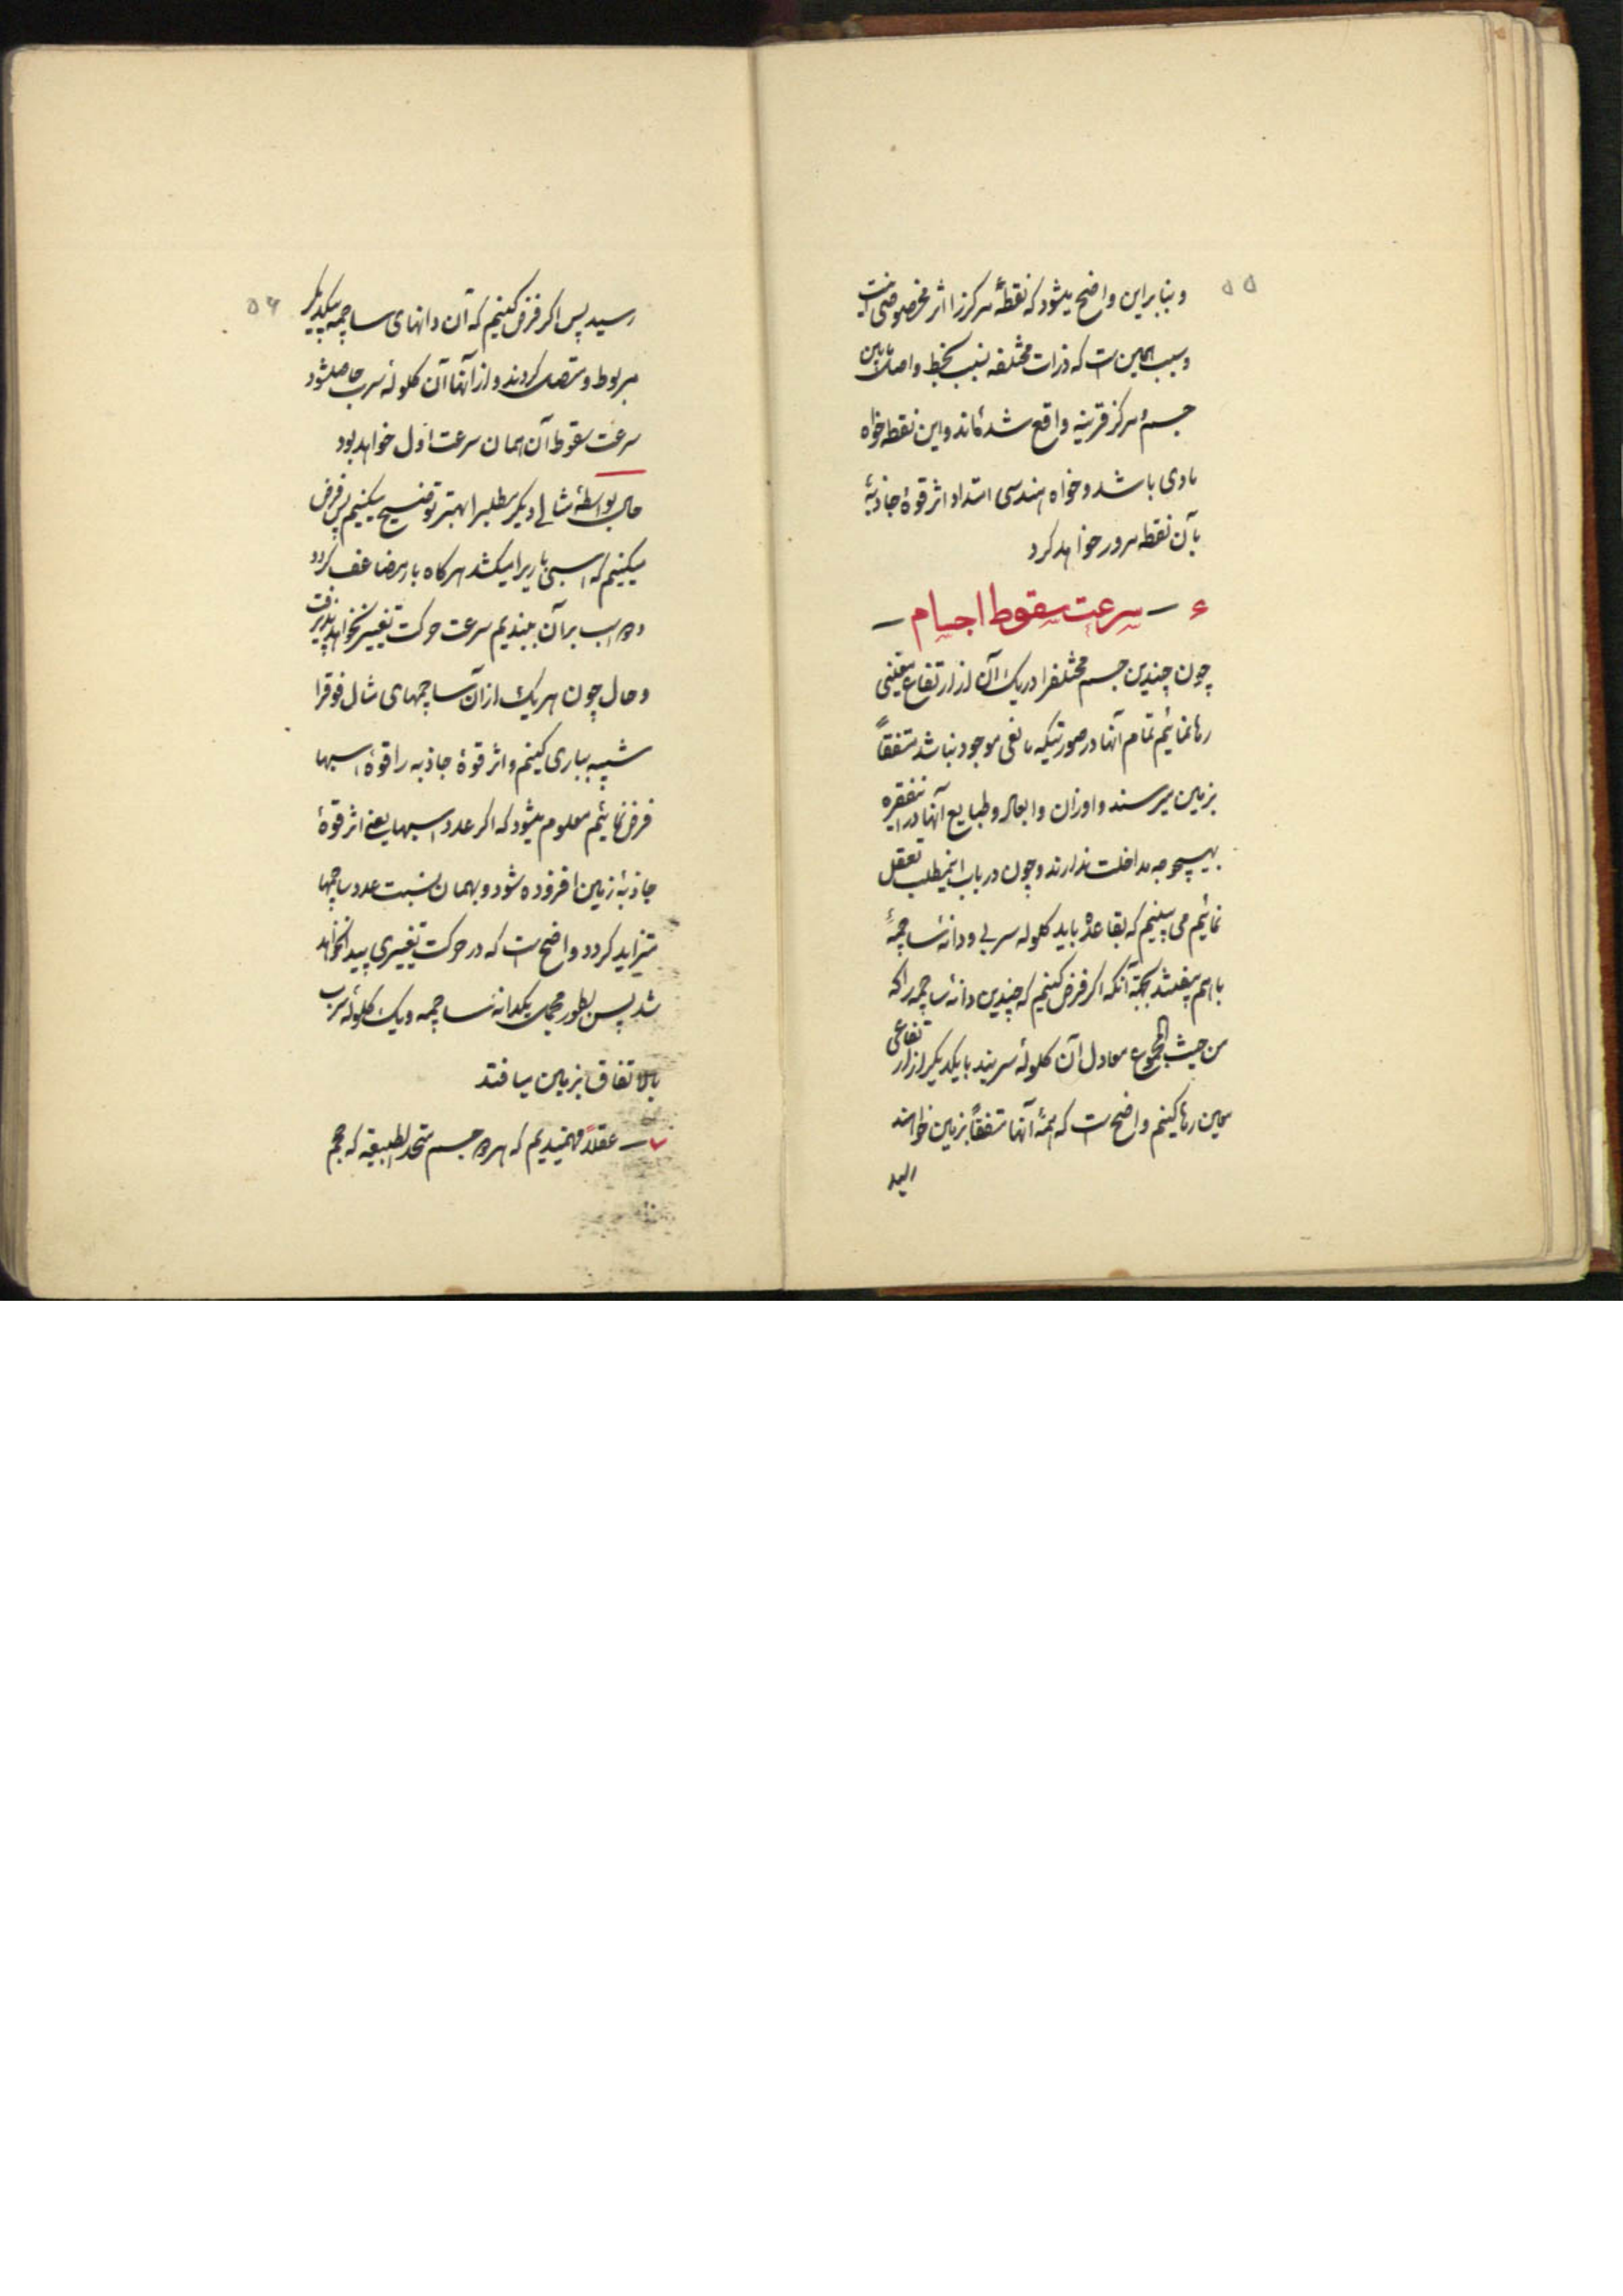 ۵۵
و بنابراین واضح میشود که نقطهٔ مرکز را اثر مخصوصی نیست
و سبب همین است که ذرات مختلفه بنسب بخط واصل مابین
جسم و مرکز قرینه واقع شده‌اند و این نقطه خواه
مادی باشد و خواه هندسی امتداد اثر قوهٔ جاذبهٔ
بآن نقطه مرور خواهد کرد
ء – سرعت سقوط اجسام –
چون چندین جسم مختلفرا در یک آن از ارتفاع معینی
رها نمائیم تمام آنها در صورتیکه مانعی موجود نباشد متفقاً
بزمین میرسند و اوزان و ابعاد و طبایع آنها در اینفقره
بهیچوجه مداخلت ندارند و چون در باب اینمطلب تعقل
نمائیم می بینیم که بقاعده باید کلوله سربی و دانه ساچمهٔ
باهم بیفتند بجهة آنکه اکر فرض کنیم که چندین دانهٔ ساچمه را که
من حیث المجموع معادل آن کلولهٔ سربند با یکدیکر از ارتفاعی
معین رها کنیم واضح است که همهٔ آنها متفقاً بزمین خواهند
رسید
۵۶
رسید پس اکر فرض کنیم که آن دانهای ساچمه بیکدیکر
مربوط و متصل کردند و از آنها آن کلولهٔ سرب حاصل شود
سرعت سقوط آن همان سرعت اول خواهد بود
حال بواسطهٔ مثالی دیکر مطلبرا بهتر توضیح میکنیم پس فرض
میکنیم که اسبی باریرا میکشد هرکاه بار مضاعف کردد
و دو اسب بر آن ببندیم سرعت حرکت تغییر نخواهد پذیرفت
و حال چون هر یک از آن ساچمهای مثال فوقرا
شبیه بباری کنیم و اثر قوهٔ جاذبه را قوهٔ اسبها
فرض نمائیم معلوم میشود که اکر عدد اسبها یعنی اثر قوهٔ
جاذبهٔ زمین افزوده شود و بهمان نسبت عدد ساچمها
متزاید کردد واضح است که در حرکت تغییری پیدا نخواهد
شد پس بطور مجمل یکدانه ساچمه و یک کلولهٔ سرب
بالاتفاق بزمین میافتد
– عقلاً فهمیدیم که هر دو جسم متحد الطبیعة که حجم